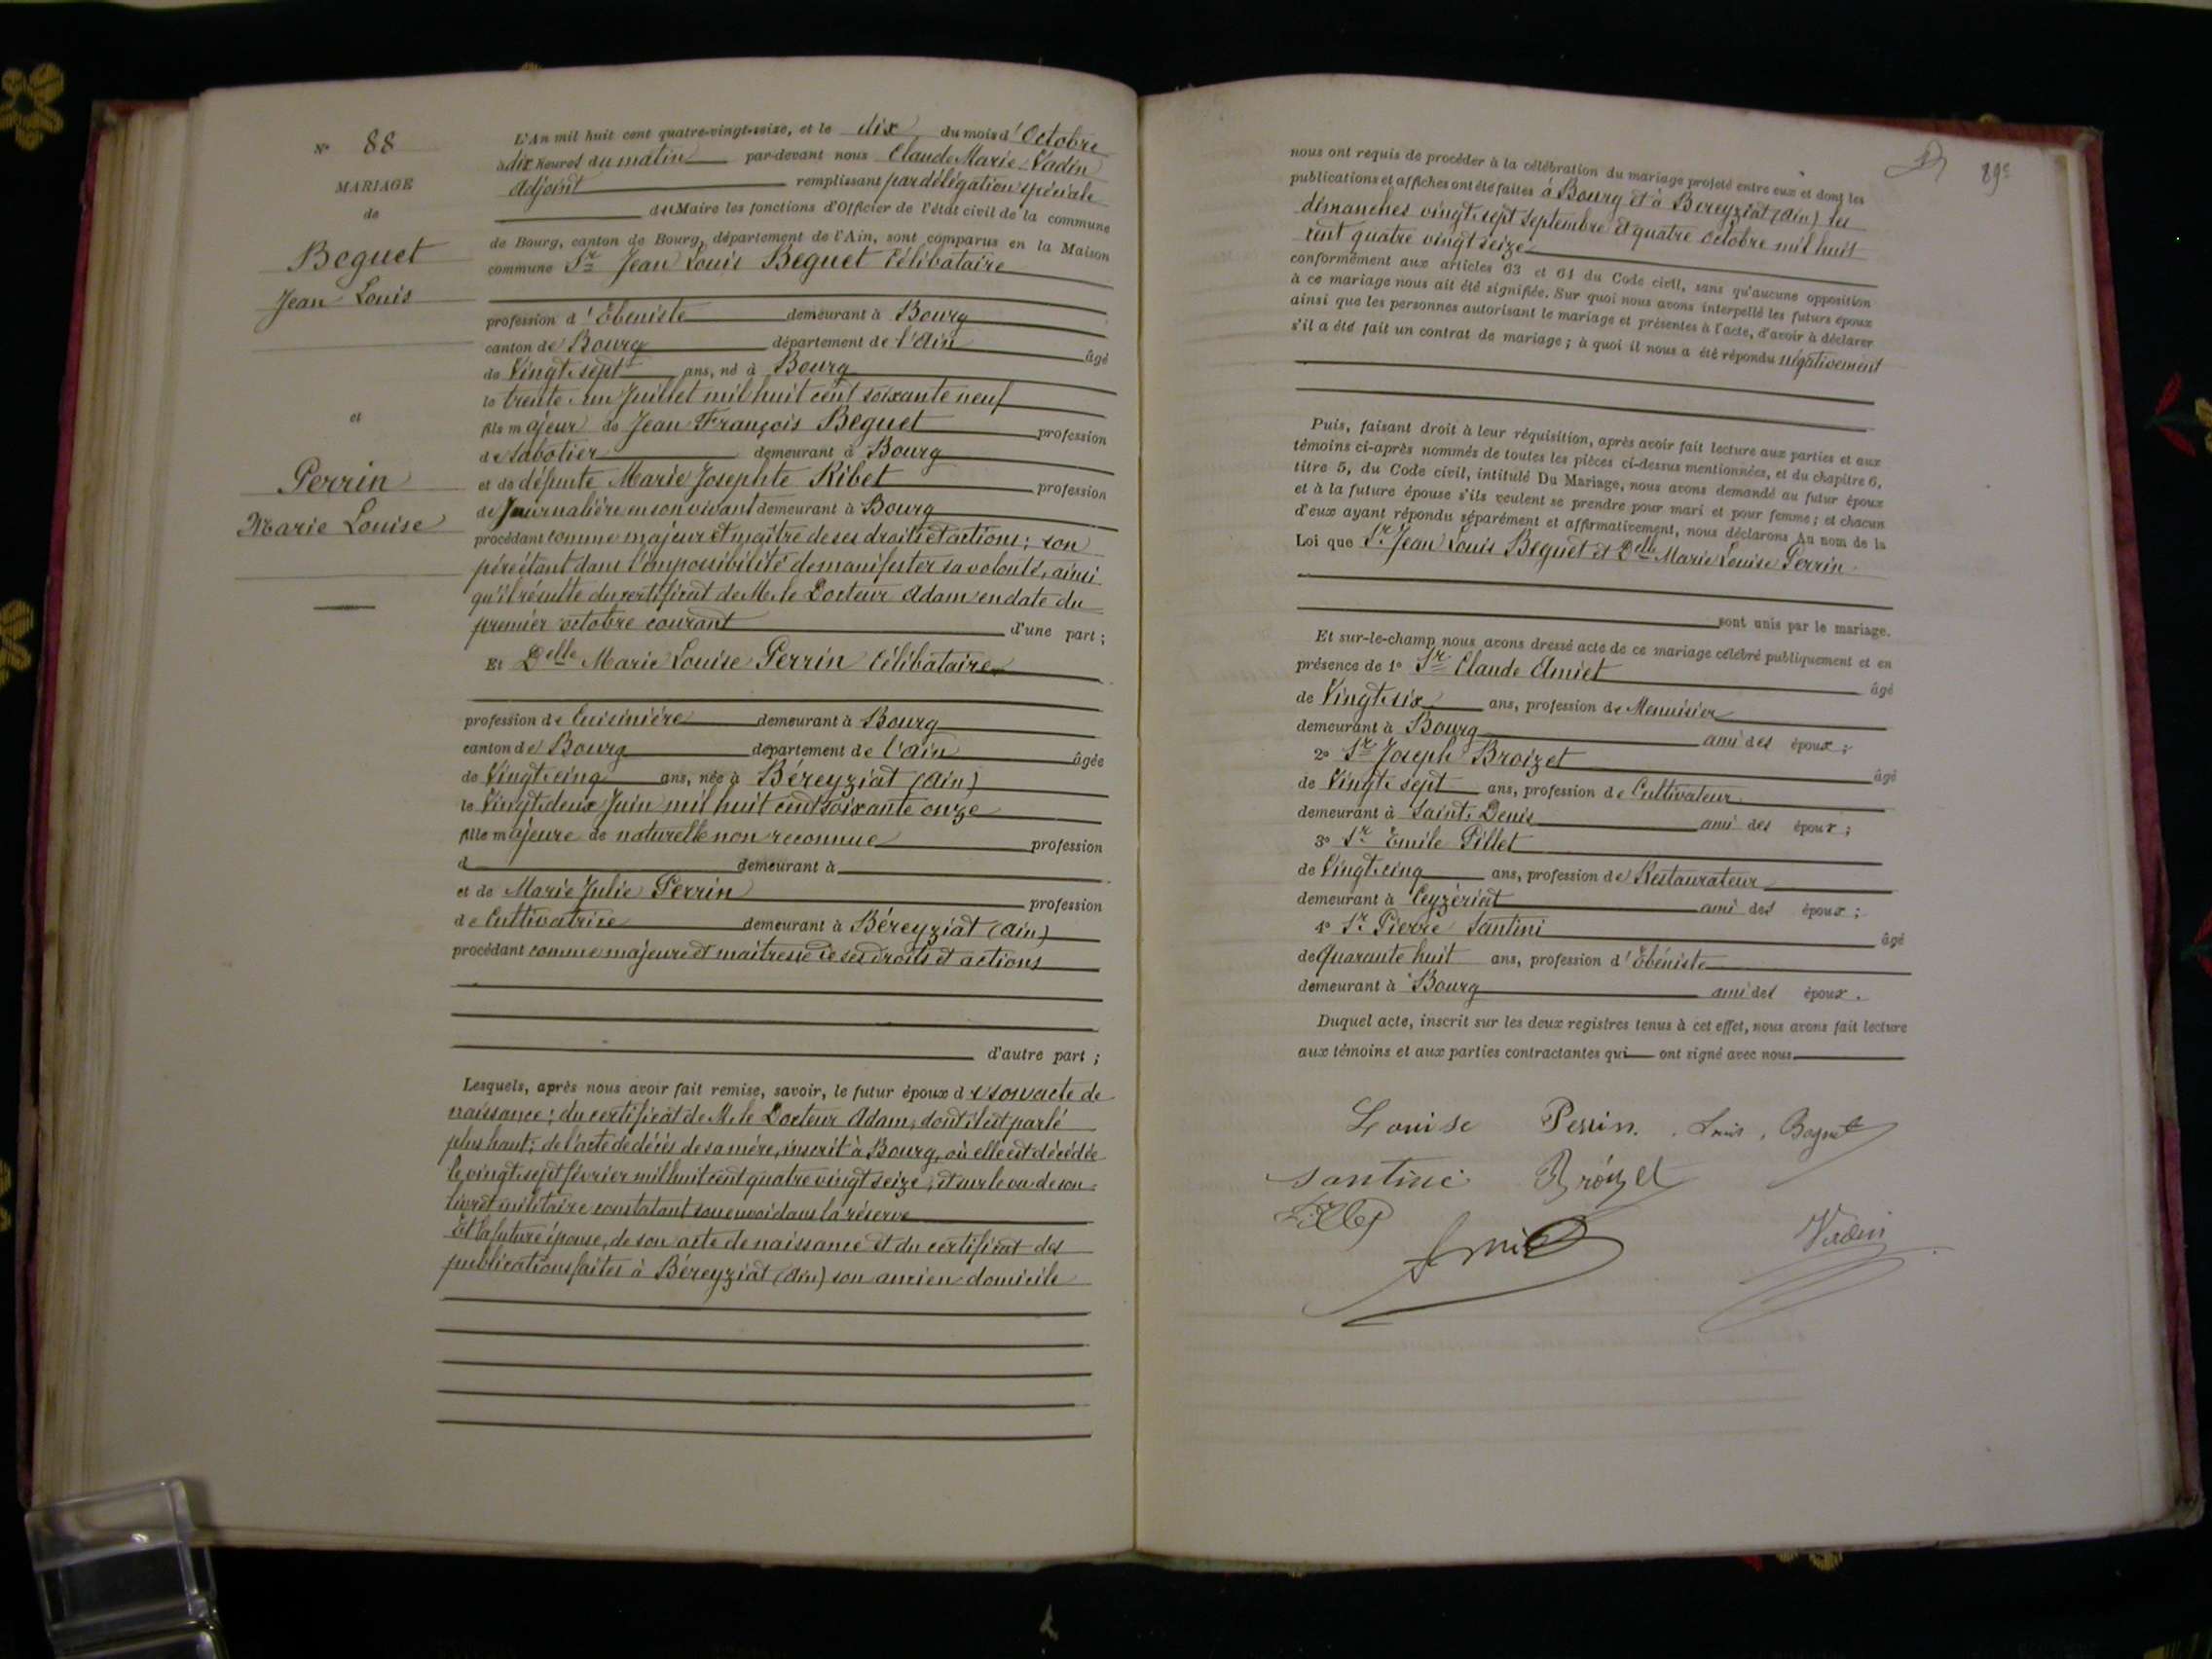 N° 88
MARIAGE
de
Beguet
Jean Louis
et
Perrin
Marie Louise
L'An mil huit cent quatre-vingt-seize, et le dix du mois d'Octobre
à dix heures du matin par-devant nous Claude Marie Vadin
Adjoint remplissant par délégation spéciale
du Maire les fonctions d'Officier de l'état civil de la commune
de Bourg, canton de Bourg, département de l'Ain, sont comparus en la Maison
commune Sr Jean Louis Beguet Célibataire
profession d'Ebeniste demeurant à Bourg
canton de Bourg département de l'Ain âgé
de Vingt sept ans, né à Bourg
le trente un Juillet mil huit cent soixante neuf
fils majeur de Jean François Beguet profession
de Sabotier demeurant à Bourg
et de défunte Marie Josephte Ribet profession
de Journalière en son vivant demeurant à Bourg
procédant comme majeur et maître de ses droits et actions; son
père étant dans l'impossibilité de manifester sa volonté, ainsi
qu'il résulte du certificat de M. le Docteur Adam en date du
premier octobre courant d'une part;
Et Delle Marie Louise Perrin Célibataire
profession de Cuisinière demeurant à Bourg
canton de Bourg département de l'Ain âgée
de Vingt cinq ans, née à Béreyziat (Ain)
le Vingt deux Juin mil huit cent soixante onze
fille majeure de naturelle non reconnue profession
d demeurant à
et de Marie Julie Perrin profession
de Cultivatrice demeurant à Béreyziat (Ain)
procédant comme majeure et maitresse de ses droits et actions
d'autre part;
Lesquels, après nous avoir fait remise, savoir, le futur époux de son acte de
naissance; du certificat de M. le Docteur Adam, dont il est parlé
plus haut; de l'acte de décès de sa mère, inscrit à Bourg, où elle est décédée
le vingt sept février mil huit cent quatre vingt seize; et sur le vu de son
livret militaire constatant son envoi dans la réserve
Et la future épouse, de son acte de naissance et du certificat des
publications faites à Béreyziat (Ain) son ancien domicile
89e
nous ont requis de procéder à la célébration du mariage projeté entre eux et dont les
publications et affiches ont été faites à Bourg et à Bereyziat (Ain) les
dimanches vingt sept septembre et quatre octobre mil huit
cent quatre vingt seize
conformément aux articles 63 et 64 du Code civil, sans qu'aucune opposition
à ce mariage nous ait été signifiée. Sur quoi nous avons interpellé les futurs époux
ainsi que les personnes autorisant le mariage et présentes à l'acte, d'avoir à déclarer
s'il a été fait un contrat de mariage; à quoi il nous a été répondu négativement
Puis, faisant droit à leur réquisition, après avoir fait lecture aux parties et aux
témoins ci-après nommés de toutes les pièces ci-dessus mentionnées, et du chapitre 6,
titre 5, du Code civil, intitulé Du Mariage, nous avons demandé au futur époux
et à la future épouse s'ils veulent se prendre pour mari et pour femme; et chacun
d'eux ayant répondu séparément et affirmativement, nous déclarons Au nom de la
Loi que Sr Jean Louis Beguet et Delle Marie Louise Perrin
sont unis par le mariage.
Et sur-le-champ nous avons dressé acte de ce mariage célébré publiquement et en
présence de 1° Sr Claude Amiet âgé
de Vingt six ans, profession de Menuisier
demeurant à Bourg ami des époux;
2° Sr Joseph Broizet âgé
de Vingt sept ans, profession de Cultivateur
demeurant à Saint Denis ami des époux;
3° Sr Emile Pillet
de Vingt cinq ans, profession de Restaurateur
demeurant à Ceyzériat ami des époux;
4° Sr Pierre Santini âgé
de Quarante huit ans, profession d'Ebéniste
demeurant à Bourg ami des époux.
Duquel acte, inscrit sur les deux registres tenus à cet effet, nous avons fait lecture
aux témoins et aux parties contractantes qui ont signé avec nous
Louise Perrin. Louis Beguet
Santini Broizet
Pillet
Amiet Vadin